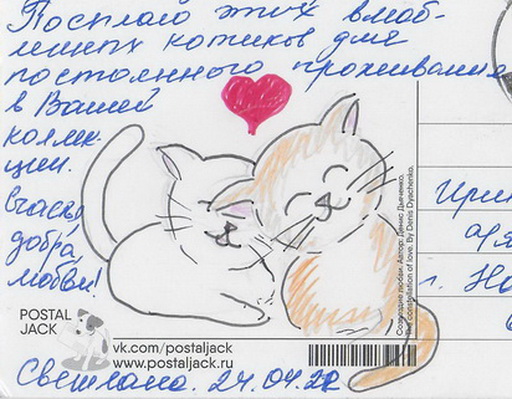 Посылаю этих влюб-
ленных котиков для
постоянного проживания
в Вашей
коллек-
ции.
Счастья,
добра,
любви!
Светлана. 24.04.22
POSTAL
JACK
vk.com/postaljack
www.postaljack.ru
Созвездие любви. Автор: Денис Дьяченко.
The constellation of love. By Denis Dyachenko.
г. Но